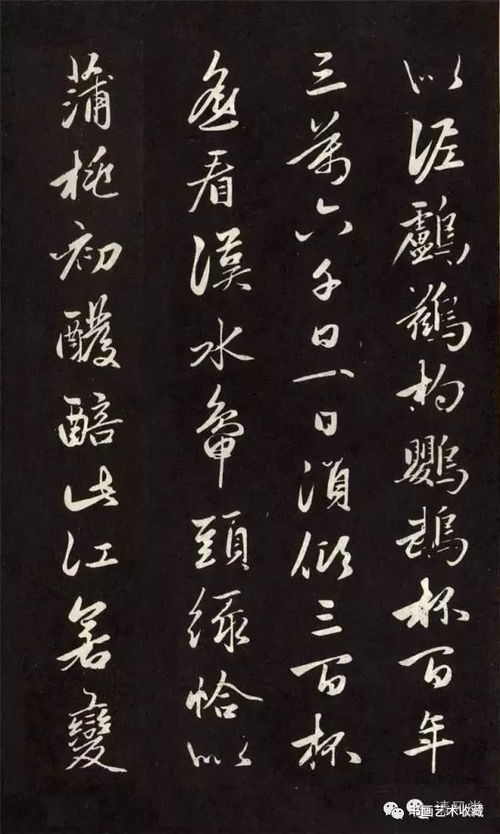 以泥鸕鶿杓鸚鵡杯百年
三萬六千日一日須傾三百杯
遙看漢水鴨頭綠恰以
蒲桃初醱醅此江若變
书画艺术收藏